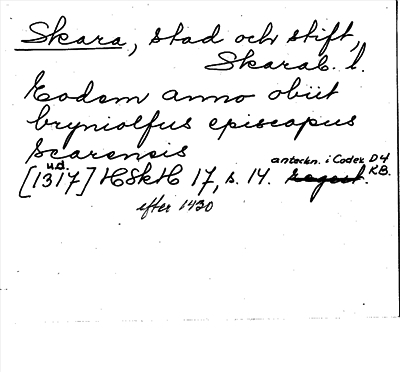 Skara, stad och stift,
Skarab. l.
Eodem anno obiit
bryniolfus episcopus
scarensis
u.d. anteckn. i Codex D4
[1317] HSkH 17, s. 14. KB.
efter 1430